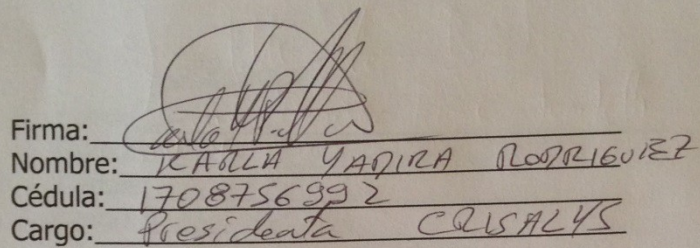 Firma:
Nombre: KARLA YADIRA RODRIGUIEZ
Cédula: 1708756992
Cargo: Presidenta CRISALYS